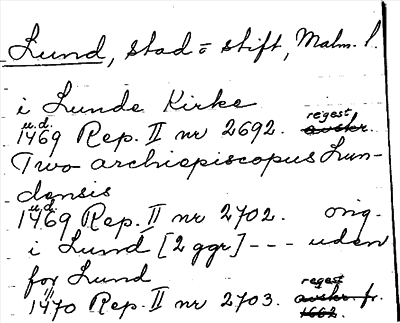 Lund, stad o stift, Malm. l.
i Lunde Kirke
u.d. regest
1469 Rep. II nr 2692. avskr.
Tuo archiepiscopus Lun-
densis
u.d.
1469 Rep. II nr 2702. orig.
i Lund [2 ggr] --- uden
for Lund
regest
1470 Rep. II nr 2703. avskr. fr.
1662.